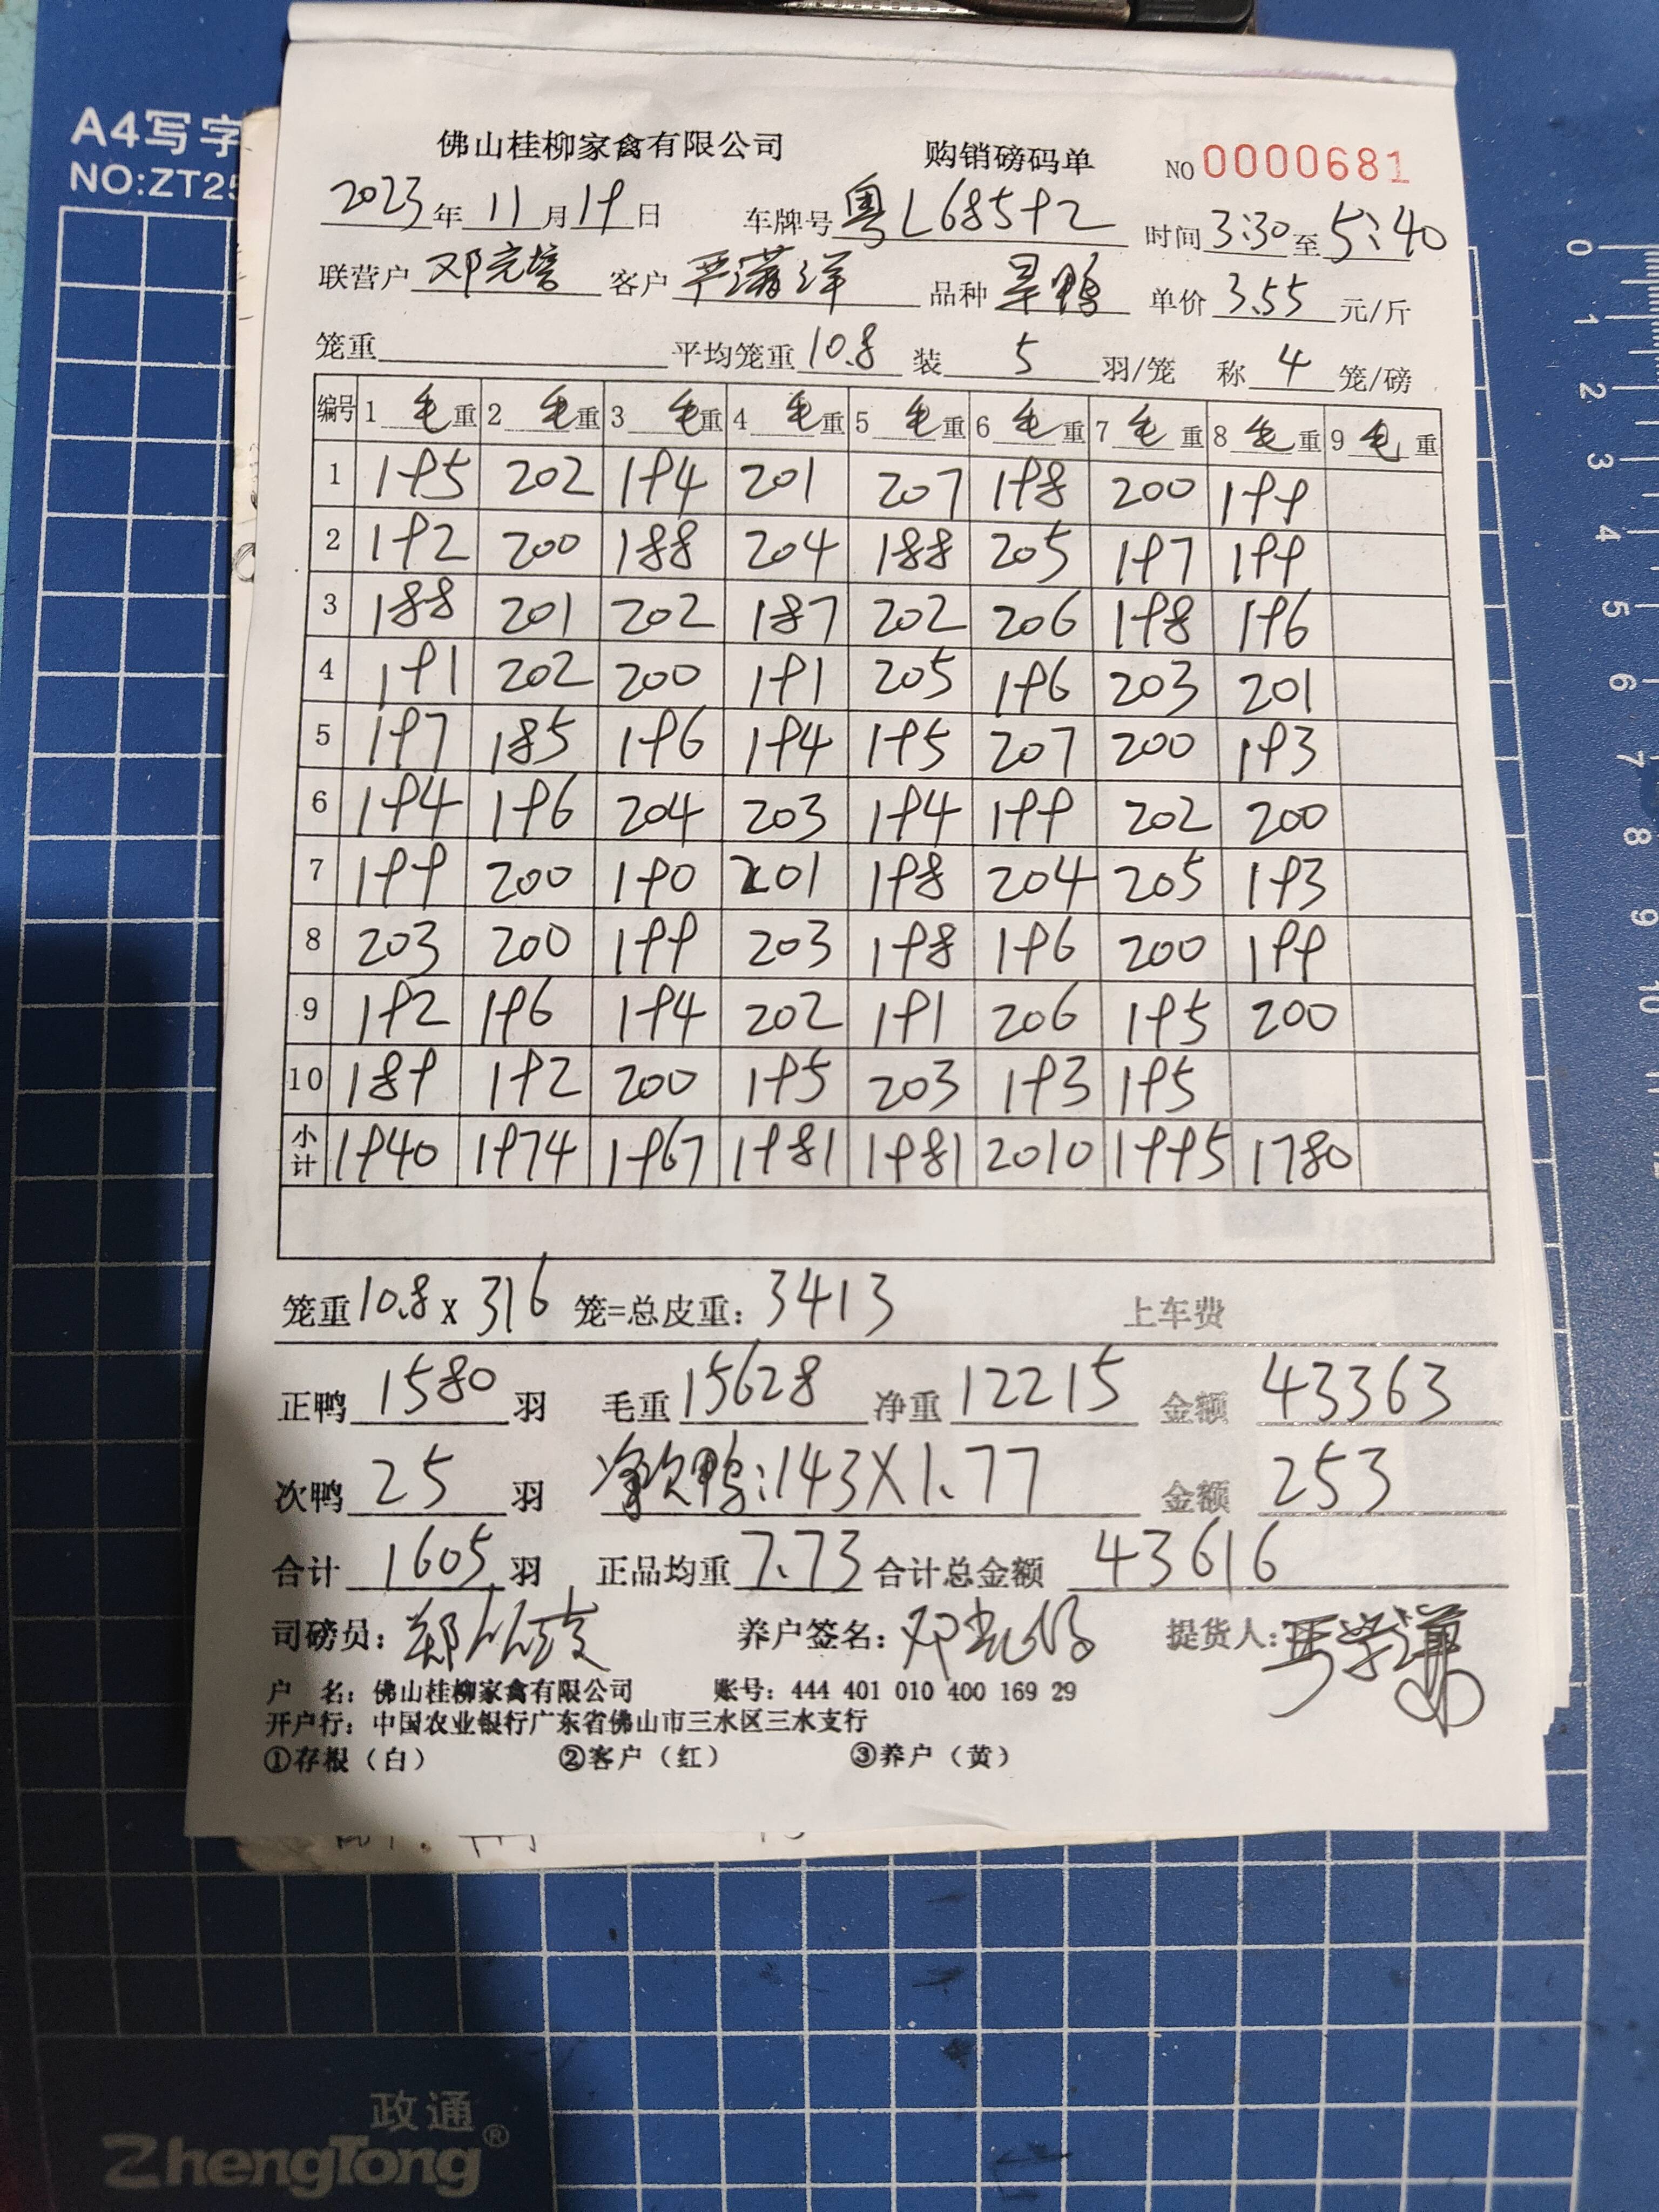 A4写字
NO:ZT25
佛山桂柳家禽有限公司 购销磅码单 NO 0000681
2023年 11 月 19 日 车牌号 粤L68592 时间 3:30 至 5:40
联营户 邓 客户 严潇洋 品种 旱鸭 单价 3.55 元/斤
笼重 平均笼重 10.8 装 5 羽/笼 称 4 笼/磅
编号 1 毛重 2 毛重 3 毛重 4 毛重 5 毛重 6 毛重 7 毛重 8 毛重 9 毛重
1 195 202 194 201 207 198 200 199
2 192 200 188 204 188 205 197 199
3 188 201 202 187 202 206 198 196
4 191 202 200 191 205 196 203 201
5 197 185 196 194 195 207 200 193
6 194 196 204 203 194 199 202 200
7 199 200 190 201 198 204 205 193
8 203 200 199 203 198 196 200 199
9 192 196 194 202 191 206 195 200
10 189 192 200 195 203 193 195
小计 1940 1974 1967 1981 1981 2010 1995 1780
笼重 10.8 X 316 笼=总皮重: 3413 上车费
正鸭 1580 羽 毛重 15628 净重 12215 金额 43363
次鸭 25 羽 净次鸭:143X1.77 金额 253
合计 1605 羽 正品均重 7.73 合计总金额 43616
司磅员: 郑 养户签名: 邓 提货人:
户 名: 佛山桂柳家禽有限公司 账号: 444 401 010 400 169 29
开户行: 中国农业银行广东省佛山市三水区三水支行
①存根(白) ②客户(红) ③养户(黄)
0
1
2
3
4
5
6
7
8
9
10
政通
ZhengTong®